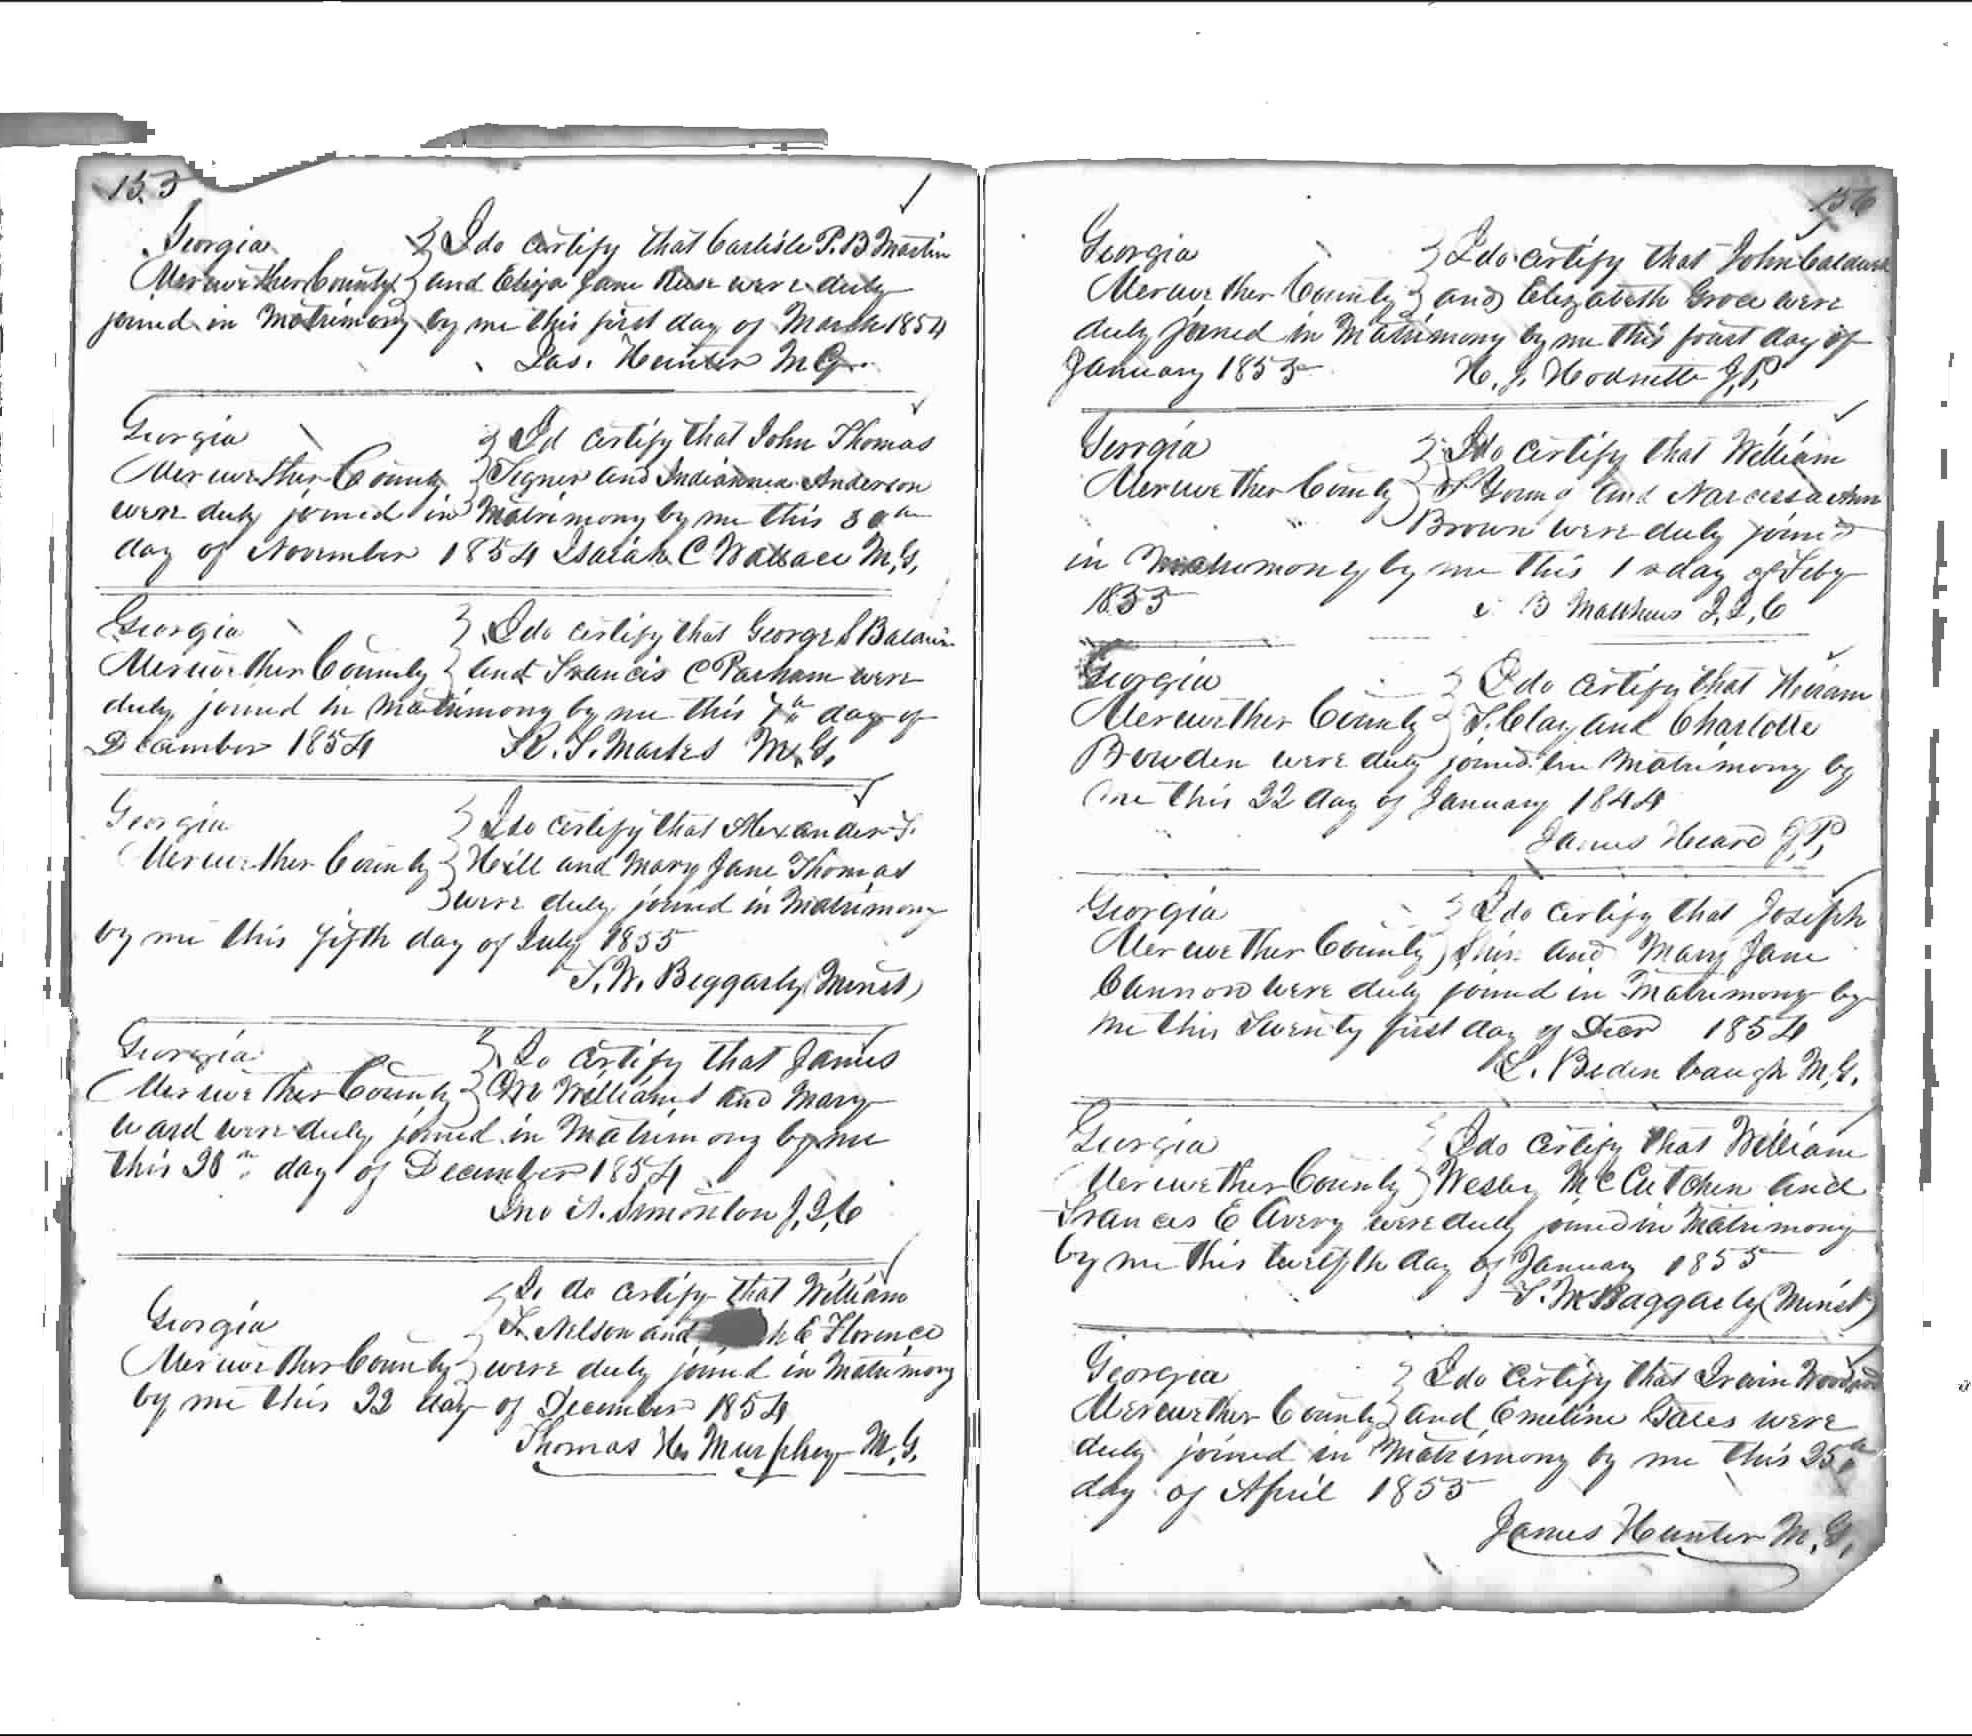 155
Georgia } I do certify that Carlisle P. B Martin
Meriwether County } and Eliza Jane Rese were duly
joined in Matrimony by me this first day of March 1854
Jas. Hunter M G.
Georgia } I d certify that John Thomas
Meriwether County } Signer and Indianna Anderson
were duly joined in Matrimony by me this 30th
day of November 1854 Isaiah C Wallace M, G,
Georgia } I do certify that George S Baldwin
Meriwether County } and Francis C Parham were
duly joined in Matrimony by me this 7th day of
December 1854 R. S. Marks M. G,
Georgia } I do certify that Alexander F.
Meriwether County } Hill and Mary Jane Thomas
were duly joined in Matrimony
by me this fifth day of July 1855
T. W. Beggarly (Minst)
Georgia } I do certify that James
Meriwether County } Mc Williams and Mary
Ward were duly joined in Matrimony by me
this 28th day of December 1854
Jno A. Simonton J, I, C
I do certify that William
Georgia } F. Nelson and h E Florence
Meriwether County } were duly joined in Matrimony
by me this 22 day of December 1854
Thomas H. Murphey M, G,
156
Georgia } I do certify that John Caldwell
Meriwether County } and Elizabeth Groce were
duly joined in Matrimony by me this first day of
January 1855 H. J. Hodnette J, P,
Georgia } I do certify that William
Meriwether County } S Young and Narcissa Ann
Brown were duly joined
in Matrimony by me this 1 day of Feby
1855 B Matthews J, I, C
Georgia } I do certify that Hiram
Meriwether County } T. Clay and Charlotte
Bowden were duly joined in Matrimony by
me this 22 day of January 1844
James Heard J, P,
Georgia } I do certify that Joseph
Meriwether County } and Mary Jane
Cannon were duly joined in Matrimony by
me this Twenty first day of Decr 1854
L. Bedenbaugh M, G,
Georgia } I do certify that William
Meriwether County } Wesley McCutchen and
Francis E Avery were duly joined in Matrimony
by me this twelfth day of January 1855
T. W Baggarly (Minst)
Georgia } I do certify that Irvin Woodard
Meriwether County } and Emeline Gates were
duly joined in Matrimony by me this 25th
day of April 1855
James Hunter M, G,